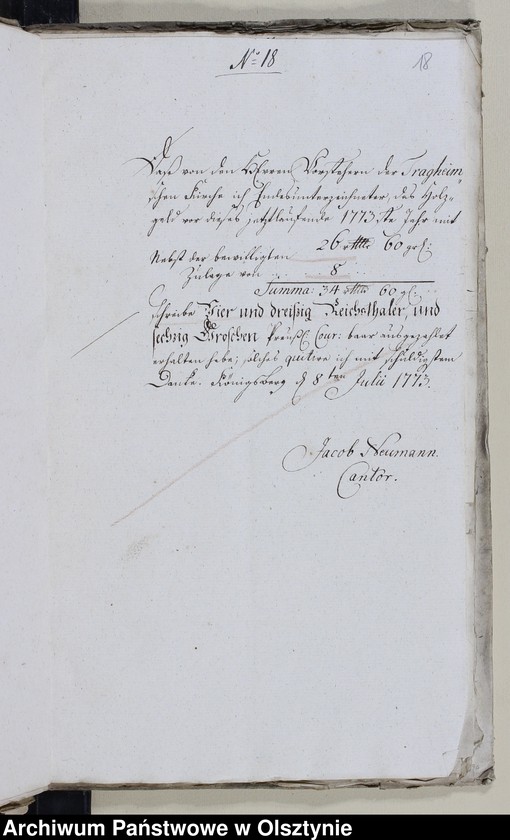 No 18
18
Daß von den Herren Vorstehern der Tragheim"
schen Kirche ich Endesunterzeichneter, das Holz-
geld vor dieses jetztlaufende 1773.ste Jahr mit
26 rthlr 60 gr:
Nebst der bewilligten
Zulage von . . . 8 . . .
Summa: 34 rthlr 60 gl.
schreibe Vier und dreißig Reichsthaler, und
sechzig Groschen Preuß. Cour: baar ausgezahlet
erhalten habe; solches quitire ich mit schuldigstem
Danke. Königsberg d 8ten Julii 1773.
Jacob Neumann.
Cantor.
Archiwum Państwowe w Olsztynie